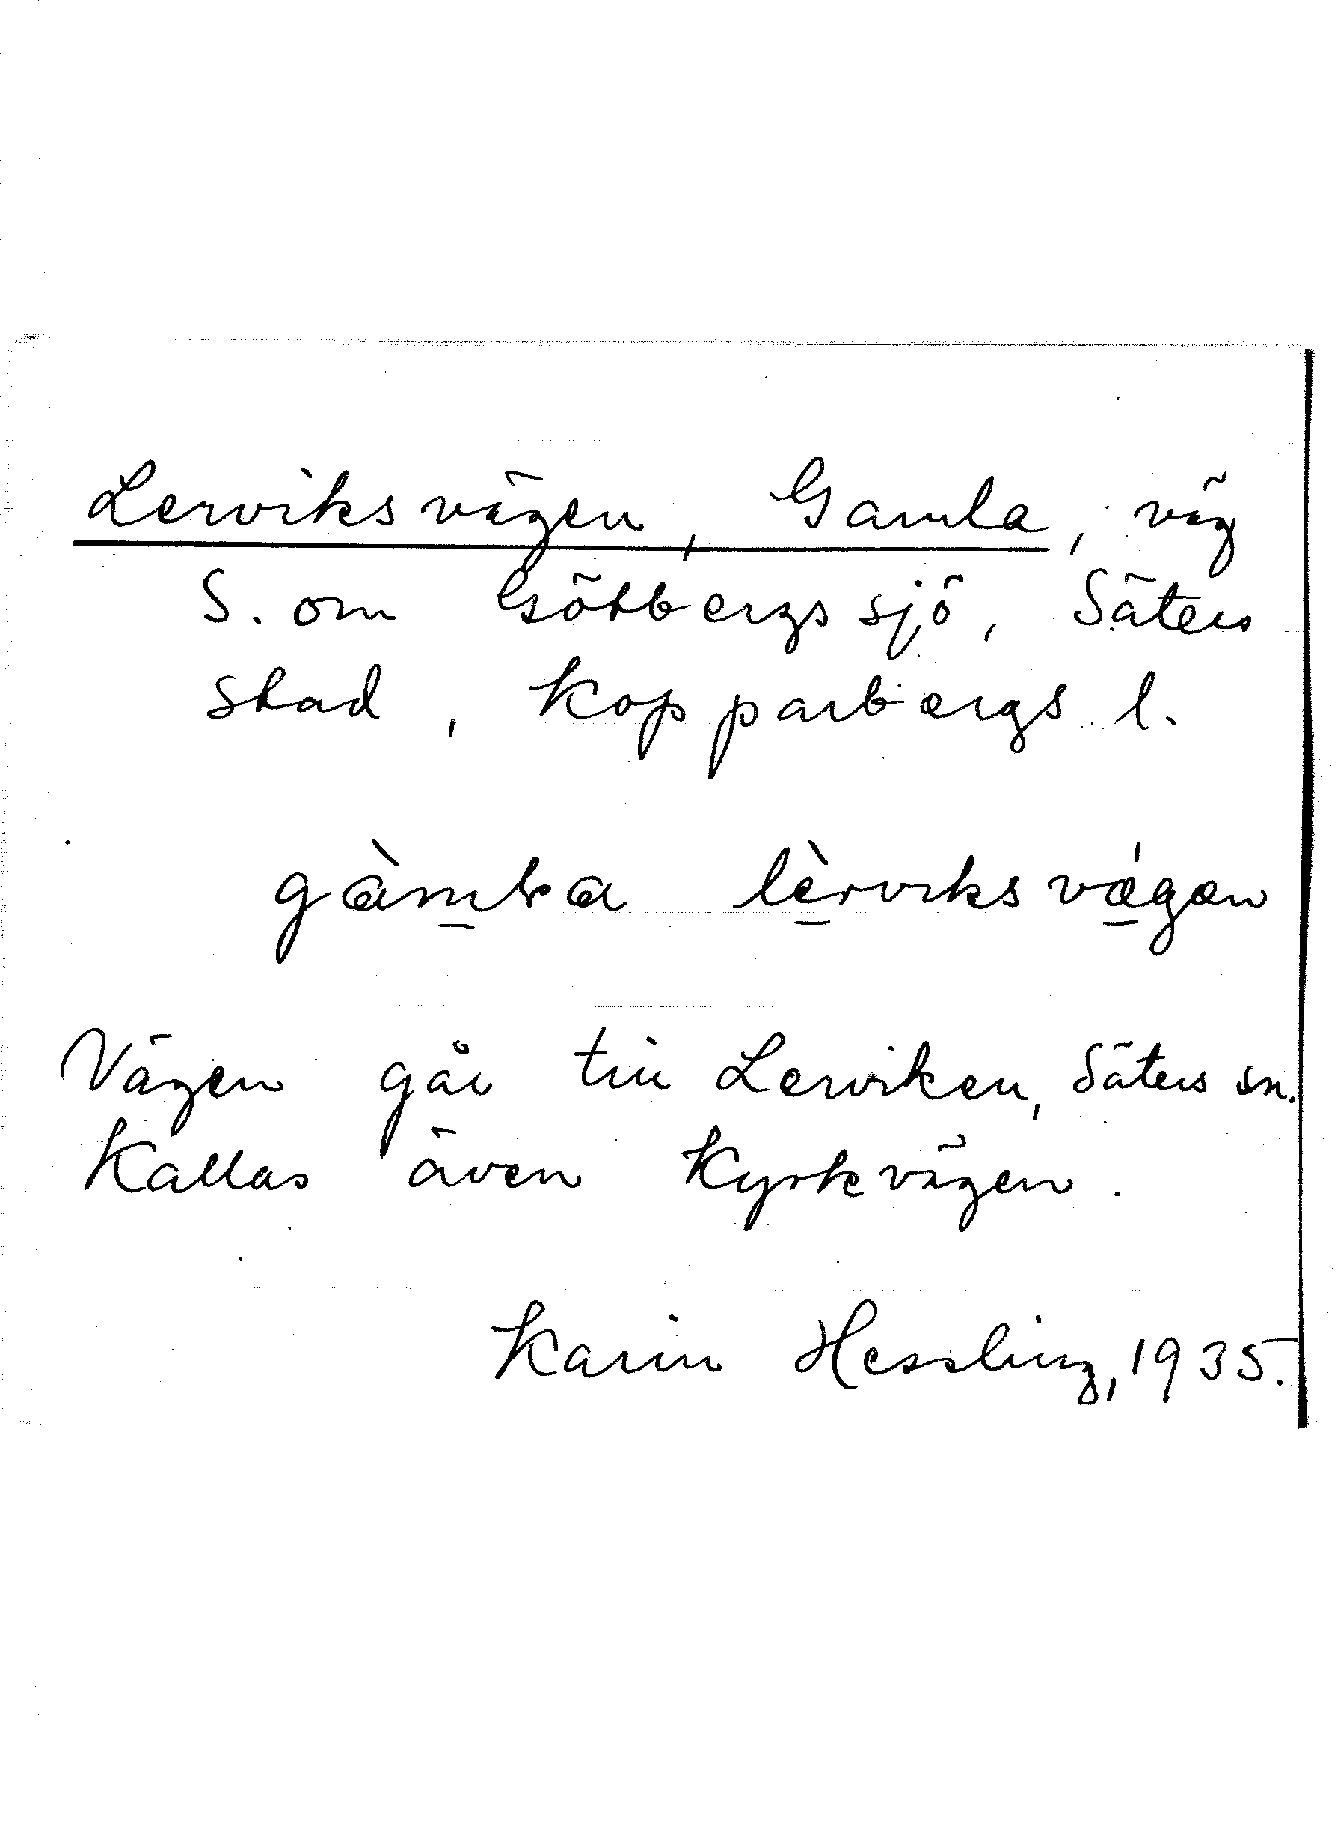 Lerviksvägen, Gamla, väg
S. om Götbergssjö, Säters
stad, Kopparbergs l.
gàm̲ɫa lè̲rviksvǽ̲gæn
Vägen går till Lerviken, Säters sn.
Kallas även Kyrkvägen.
Karin Hessling, 1935.